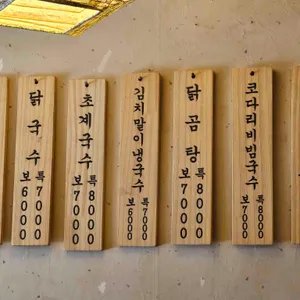 닭국수
보6000
특7000
초계국수
보7000
특8000
김치말이냉국수
보6000
특7000
닭곰탕
보7000
특8000
코다리비빔국수
보7000
특8000